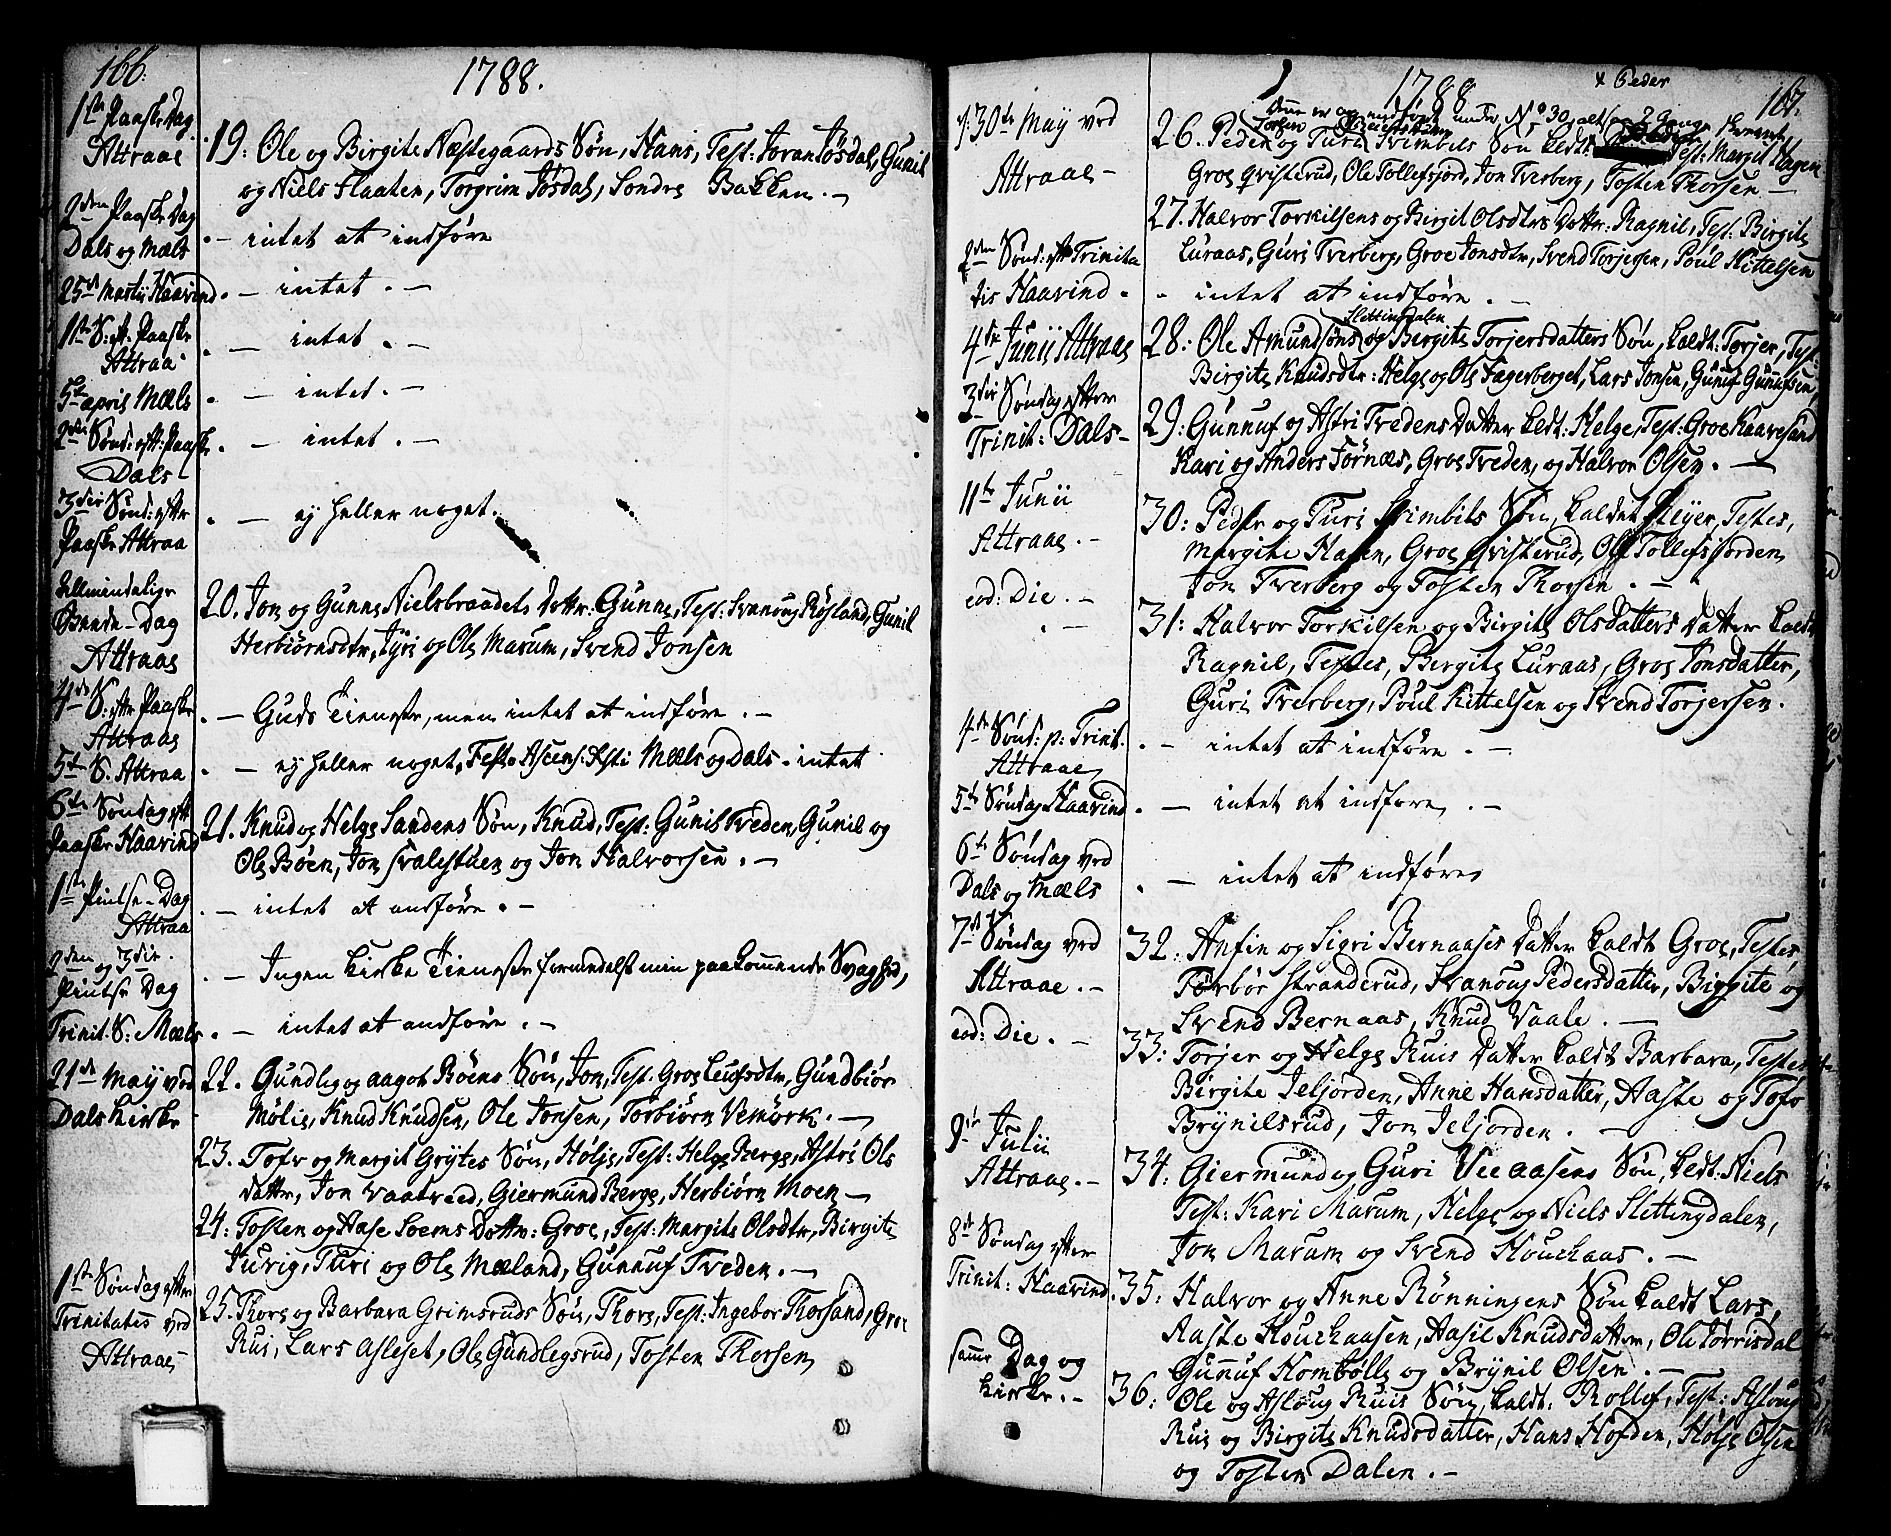 166.
1788.
1ste Paaske Dag
Attraae
19. Ole og Birgite Næstegaards Søn, Hans, Test: Joran Jøsdal, Gunil
og Niels Flaaten, Torgrim Jøsdal, Sondre Bakken. —
2den Paaske Dag
Dals og Mæls
. — intet at indføre
25de Martii Haavind
. — intet. —
1ste S: eft. Paaske
Attraa
. — intet. —
5te april Mæls
. — intet. —
2den Sønd: eft: Paaske
Dals
. — intet. —
3die Sønd: efter
Paaske Attraa
. — ej heller noget.
Allmindelige
Beede-Dag
Attraae
20. Jon og Gunne Nielsbraadets Dotter: Gunne, Test: Svanoug Røysland, Gunil
Herbiørnsdtr, Jyri og Ole Marum, Svend Jonsen
4de S: eftr Paaske
Attraae
. — Guds Tieneste, men intet at indføre. —
5te S. Attraa
. — ej heller noget, Festo Ascens: Xsti Mæls og Dals. intet
6te Søndag eft
Paaske Haavind
21. Knud og Helge Sandens Søn, Knud, Test: Gunil Tveden, Gunil og
Ole Bøen, Jon Svalestuen og Jon Halvorsen. —
1ste Pintse-Dag
Attraa
. — intet at anføre. —
2den og 3die
Pintse Dag
. — Ingen Kirke Tieneste formedelst min paakommende Svaghed,
Trinit. S: Mæls
. — intet at anføre. —
21de May ved
Dals Kirke
22. Gundleg og Aagot Bøens Søn, Jon, Test. Groe Leufsdtr, Gundbiør
Møllie, Knud Knudsen, Ole Jonsen, Torbiørn Vemørk. —
23. Tofv og Margit Grytes Søn, Hølje, Test: Helge Berge, Astri Ols
datter, Jon Vaatveed, Giermund Berge, Herbiørn Moen —
24: Tosten og Aase Soems Dotter: Groe, Test: Margite Olsdtr, Birgite
Juvig, Turi og Ole Mæland, Gunnuf Tveden. —
1ste Søndag efter
Trinitatis ved
Attraae
25. Thore og Barbara Grimsruds Søn, Thore, Test: Ingebor Thorsand, Groe
Rui, Lars Asleset, Ole Gundlegsrud, Tosten Thorsen
1788
x Peder
167.
d: 30te May ved
Attraae —
denne er og indført under No 30, altsaa 2 Gange skrevet,
26. Peder og Turi Svimbils Søn kaldt: Test: Margit Hagen
Groe Qvisterud, Ole Tollefsjord, Jon Tverberg, Tosten Thorsen —
27. Halvor Torkilsens og Birgit Olsdtrs Dotter: Ragnil, Test: Birgite
Luraas, Guri Tverberg, Groe Jonsdtr, Svend Torjersen, Poul Kittelsen
2den Sønd: eft Trinita
tis Haavind.
. — intet at indføre. —
4de Junii Attraae
Slettingdalen
28: Ole Amundsøns og Birgite Torjersdatters Søn, kaldt: Torjer, Test:
Birgite Knudsdtr: Helge og Ole Fagerberget, Lars Jonsen, Gunuf Gunufsen,
3die Søndag efter
Trinit: Dals —
29: Gunnuf og Astri Tvedens Datter kaldt: Helge, Test: Groe Kaavesand
Kari og Anders Førnæs, Groe Tveden, og Halvor Olsen. —
11te Junii
Attraae. —
30: Peder og Turi Svimbils Søn kaldet Stejer, Testes,
Margite Hagen, Groe Qvisterud, Ole Tollefsjorden
Jon Tverberg og Tosten Thorsen. —
eod: Die. —
31: Halvor Torkilsen og Birgite Olsdatters Datter kaldt
Ragnil, Testes, Bergite Luraas, Groe Jonsdatter,
Guri Tverberg, Poul Kittelsen og Svend Torjersen.
4de Sønd: p: Trinit.
Attraae
. — intet at indføre. —
5te Søndag Haavind
. — intet at indføre. —
6te Søndag ved
Dals og Mæls
. — intet at indføre
7de Søndag ved
Attraae. —
32. Anfin og Sigri Bernaases Datter kaldt Groe, Testes,
Torbør Stranderud, Svanoug Pedersdatter, Birgite og
Svend Bernaas, Knud Vaale. —
eod: Die. —
33: Torjer og Helge Ruis Datter kaldt Barbara, Testes
Birgite Jeljorden, Anne Hansdatter, Aaste og Tofv
Brynilsrud, Jon Jeljorden. —
9de Julii
Attraae. —
34: Giermund og Guri Veaasens Søn, kaldt: Niels
Test: Kari Marum, Helge og Niels Slettingdalen,
Jon Marum og Svend Houchaas. —
8de Søndag efter
Trinit: Haavind.
35: Halvor og Anne Rønningens Søn kaldt Lars,
Aaste Houchaasen, Aasil Knudsdatter, Ole Tørrisdal
Gunnuf Hombølle og Brynil Olsen. —
samme Dag og
Kirke. —
36: Ole og Asloug Ruis Søn, kaldt: Rollef, Test: Asloug
Rui og Birgite Knudsdatter, Hans Hofden, Hølje Olsen
og Tosten Dalen. —